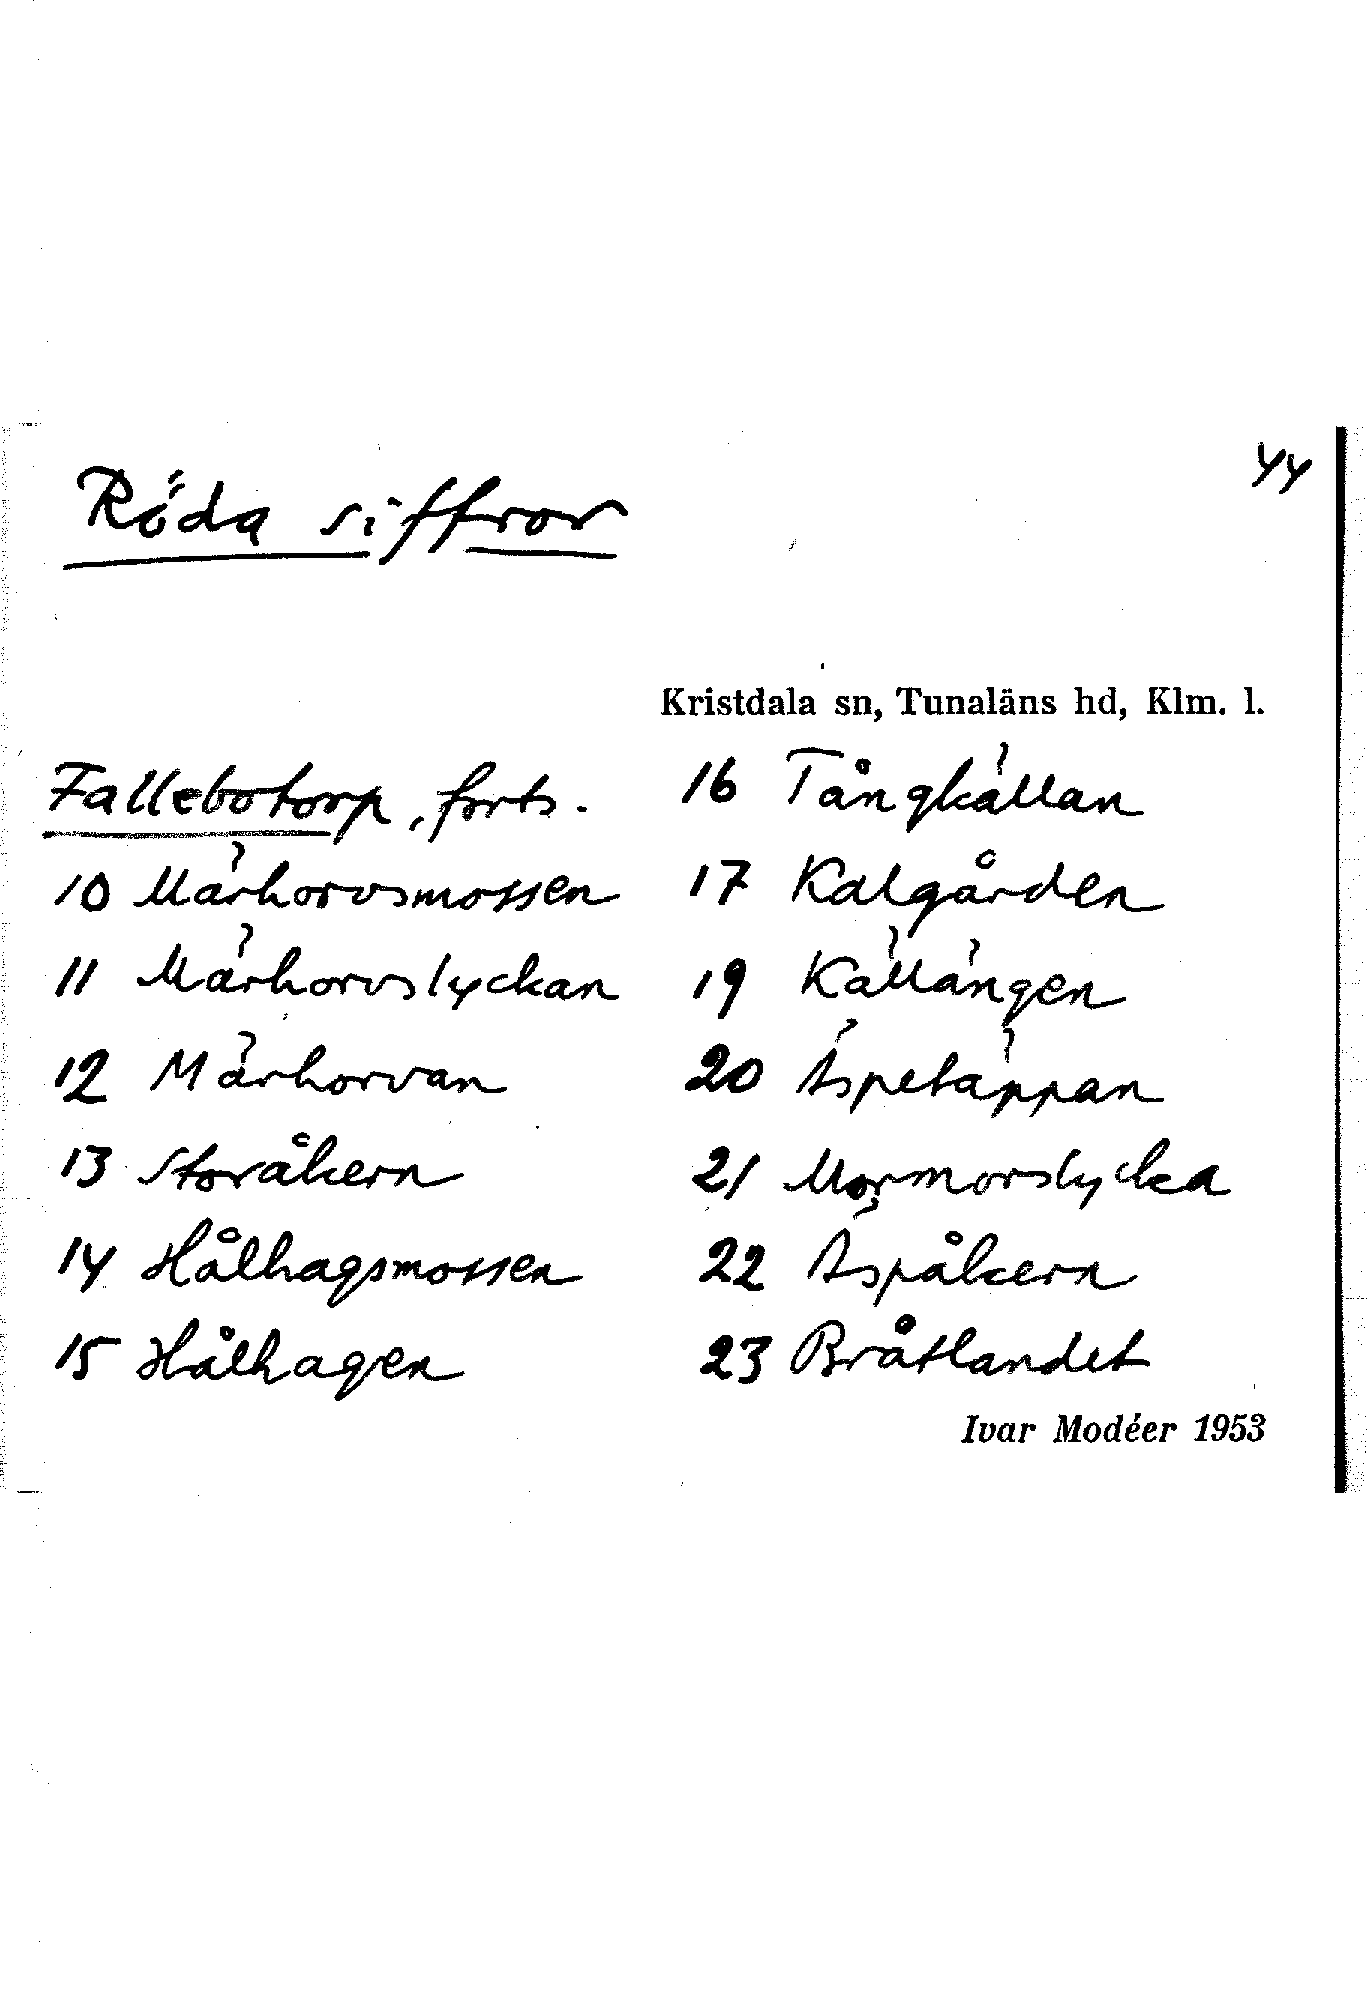 44
Röda siffror
Kristdala sn, Tunaläns hd, Klm. l.
Fallebotorp, forts.
10 Märhorvsmossen
11 Märhorvslyckan
12 Märhorvan
13 Storåkern
14 Hålhagsmossen
15 Hålhagen
16 Tångkällan
17 Kalgården
19 Källängen
20 Äspetäppan
21 Mormorslycka
22 Äspåkern
23 Bråtlandet
Ivar Modéer 1953